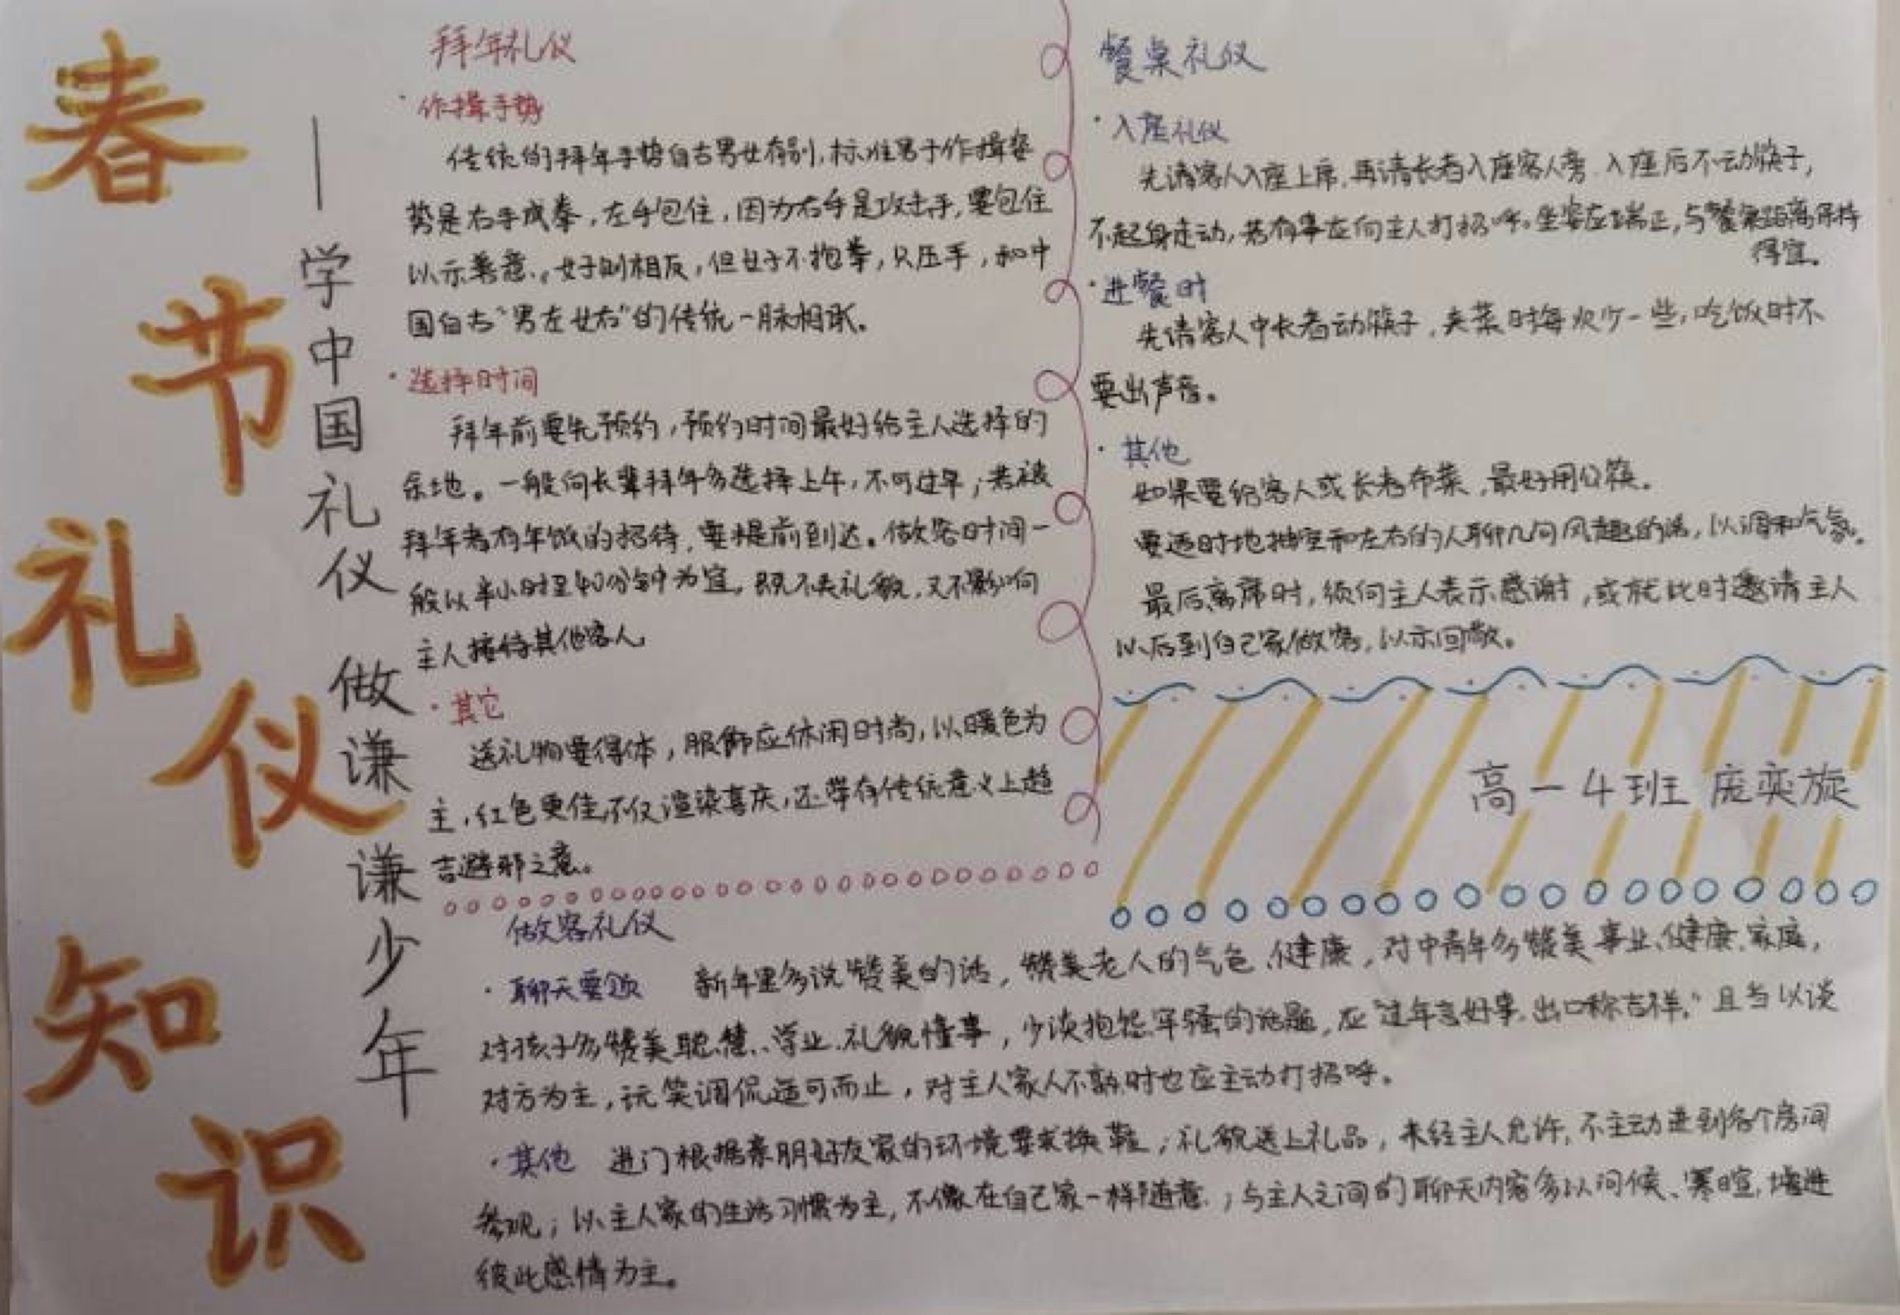 春节礼仪知识
——学中国礼仪 做谦谦少年
拜年礼仪
·作揖手势
传统的拜年手势自古男女有别,标准男子作揖姿
势是右手成拳,左手包住,因为右手是攻击手,要包住
以示善意。女子则相反,但女子不抱拳,只压手,和中
国自古“男左女右”的传统一脉相承。
·选择时间
拜年前要先预约,预约时间最好给主人选择的
余地。一般向长辈拜年多选择上午,不可过早;若被
拜年者有年饭的招待,要提前到达。做客时间一
般以半小时至40分钟为宜,既不失礼貌,又不影响
主人接待其他客人
·其它
送礼物要得体,服饰应休闲时尚,以暖色为
主,红色更佳,不仅渲染喜庆,还带有传统意义上趋
吉避邪之意。
餐桌礼仪
·入座礼仪
先请客人入座上席,再请长者入座客人旁.入座后不动筷子,
不起身走动,若有事应向主人打招呼。坐姿应端正,与餐桌距离保持
得宜。
·进餐时
先请客人中长者动筷子,夹菜时每次少一些,吃饭时不
要出声音。
·其他
如果要给客人或长者布菜,最好用公筷。
要适时地抽空和左右的人聊几句风趣的话,以调和气氛。
最后离席时,须向主人表示感谢,或就此时邀请主人
以后到自己家做客,以示回敬。
高一4班 庞奕旋
做客礼仪
·聊天要领 新年里多说赞美的话,赞美老人的气色、健康,对中青年多赞美事业、健康、家庭,
对孩子多赞美聪慧、学业、礼貌懂事,少谈抱怨牢骚的话题,应“过年言好事,出口称吉祥,”且当以谈
对方为主,玩笑调侃适可而止,对主人家人不熟时也应主动打招呼。
·其他 进门根据亲朋好友家的环境要求换鞋;礼貌送上礼品,未经主人允许,不主动进到各个房间
参观;以主人家的生活习惯为主,不像在自己家一样随意;与主人之间的聊天内容多以问候、寒暄,增进
彼此感情为主。